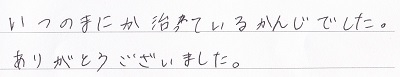 いつのまにか治ているかんじでした。
ありがとうございました。